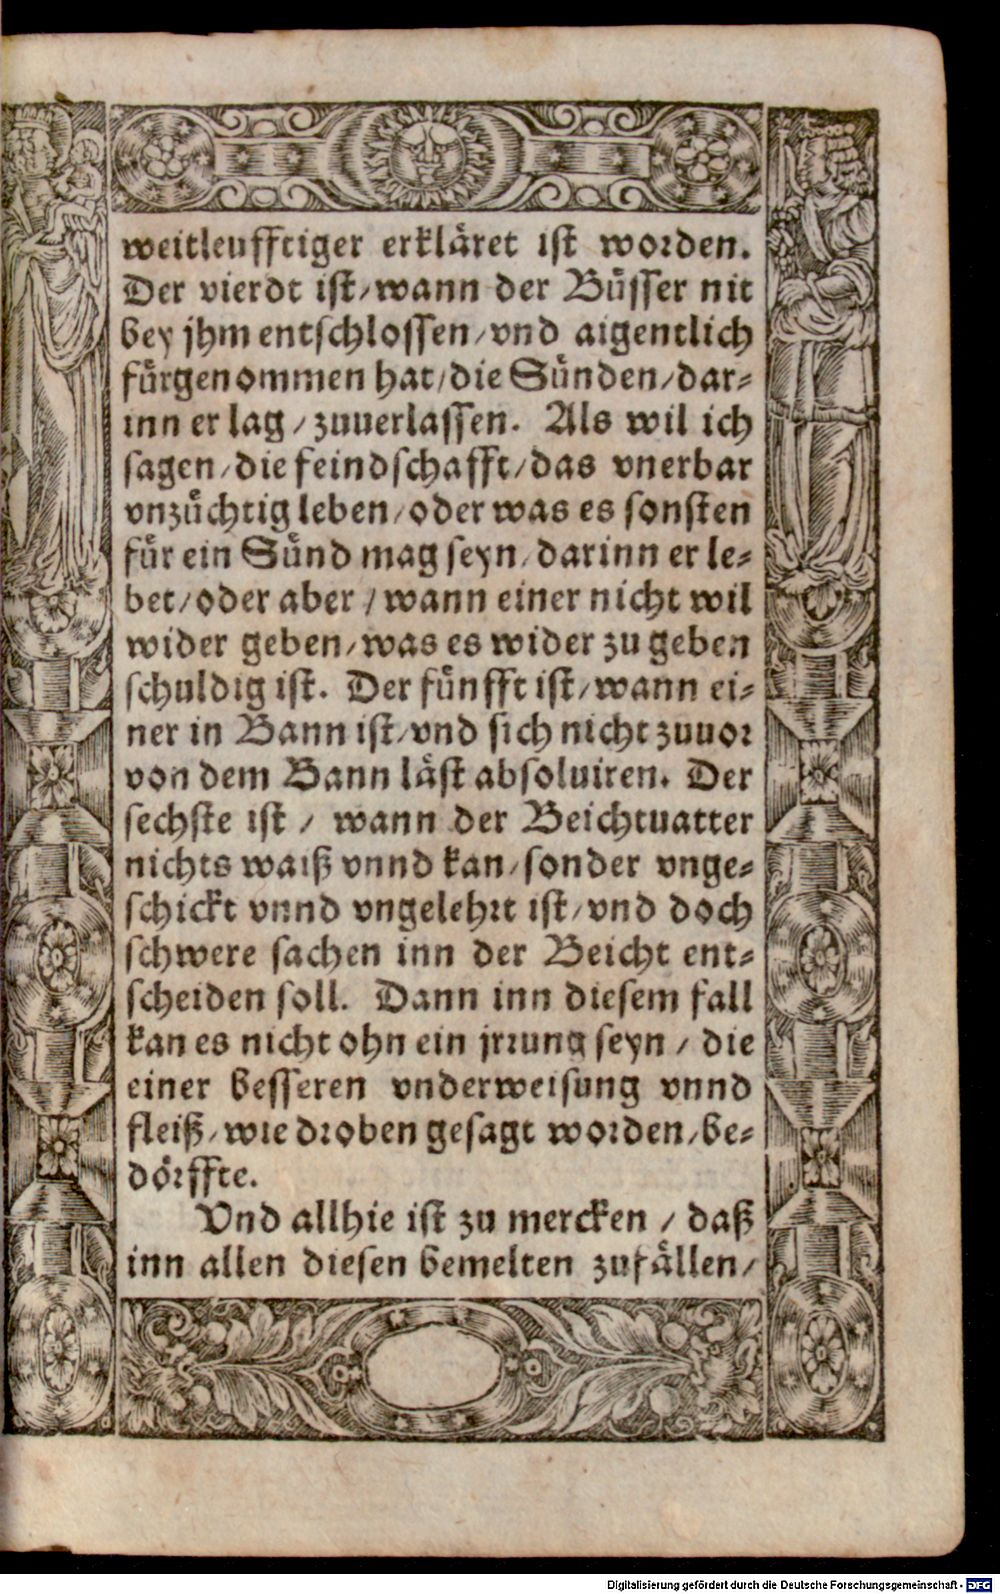 weitleufftiger erkläret ist worden.
Der vierdt ist/wann der Büsser nit
bey jhm entschlossen/vnd aigentlich
fürgenommen hat/die Sünden/dar-
inn er lag/zuuerlassen. Als wil ich
sagen/die feindschafft/das vnerbar
vnzüchtig leben/oder was es sonsten
für ein Sünd mag seyn/darinn er le-
bet/oder aber/wann einer nicht wil
wider geben/was es wider zu geben
schuldig ist. Der fünfft ist/wann ei-
ner in Bann ist/vnd sich nicht zuuor
von dem Bann läst absoluiren. Der
sechste ist/wann der Beichtuatter
nichts waiß vnnd kan/sonder vnge-
schickt vnnd vngelehrt ist/vnd doch
schwere sachen inn der Beicht ent-
scheiden soll. Dann inn diesem fall
kan es nicht ohn ein jrrung seyn/die
einer besseren vnderweisung vnnd
fleiß/wie droben gesagt worden/be-
dörffte.
Vnd allhie ist zu mercken/daß
inn allen diesen bemelten zufällen/
Digitalisierung gefördert durch die Deutsche Forschungsgemeinschaft - DFG